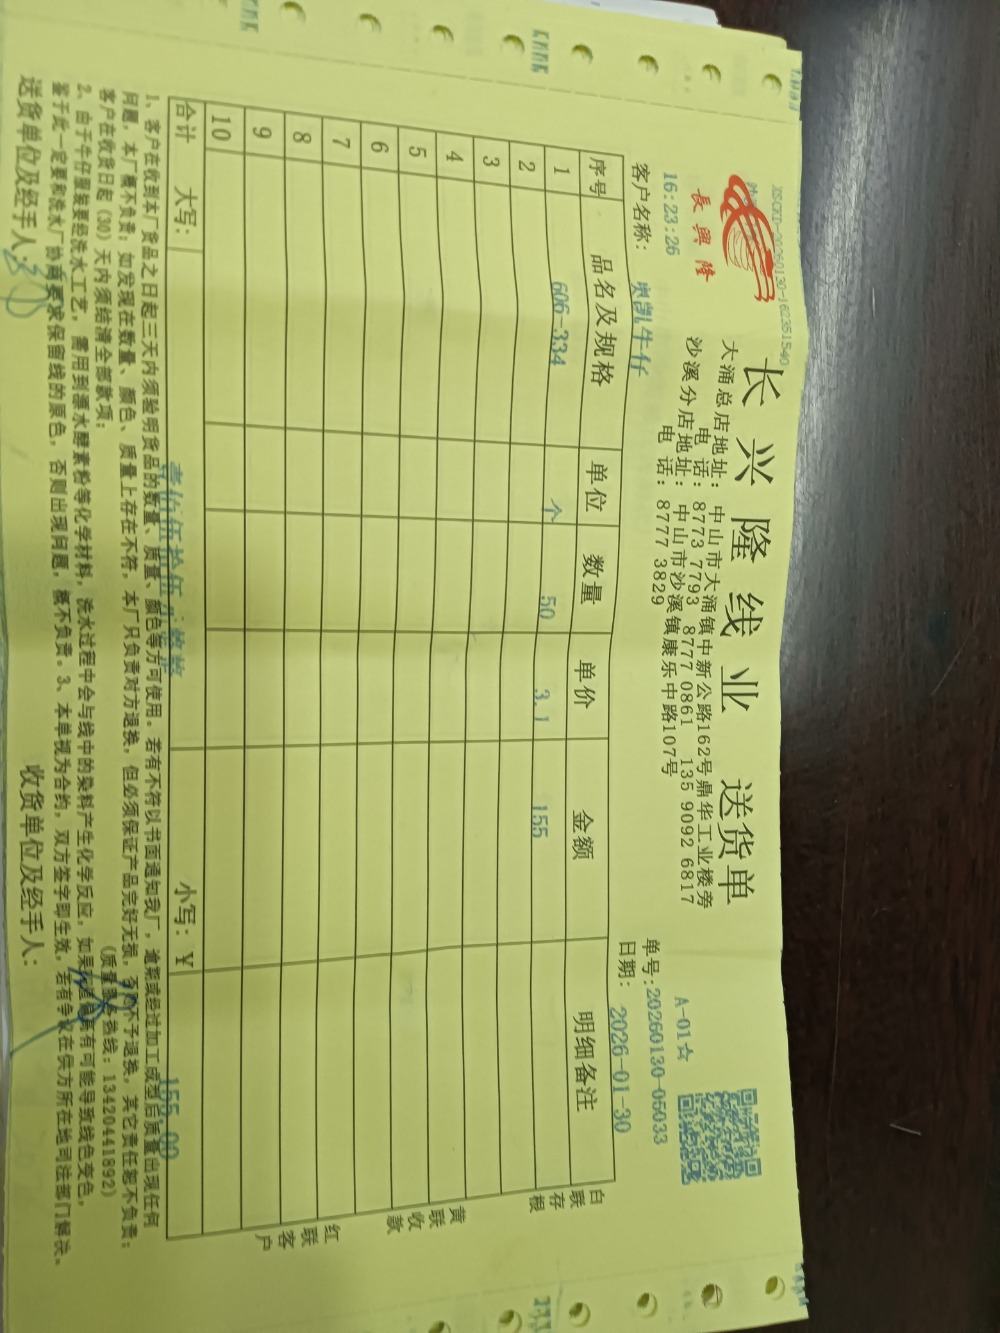 長興隆
长兴隆线业 送货单
大涌总店地址：中山市大涌镇中新公路162号鼎华工业楼旁
电话：8773 7793 8777 0861 135 9092 6817
沙溪分店地址：中山市沙溪镇康乐中路107号
电话：8777 3829
A-01☆
16:23:26
单号:20260130-05033
客户名称： 奥凯牛仔 日期： 2026-01-30
序号 品名及规格 单位 数量 单价 金额 明细备注
1 606-334 个 50 3.1 155
2
3
4
5
6
7
8
9
10
合计 大写： 壹佰伍拾伍 小写：￥ 155.00
白联存根
黄联收款
红联客户
1、客户在收到本厂货品之日起三天内须验明货品的数量、质量、颜色等方可使用。若有不符以书面通知我厂，逾期或经过加工成型后质量出现任何
问题，本厂概不负责；如发现在数量、颜色、质量上存在不符，本厂只负责对方退换，但必须保证产品完好无损，否则不予退换，其它责任恕不负责；
客户在收货日起（30）天内须结清全部款项； （质量服务热线：13420441892）
2、由于牛仔服装要经洗水工艺，需用到漂水酵素粉等化学材料，洗水过程中会与线中的染料产生化学反应，如果 有可能导致线色变色，
鉴于此一定要和洗水厂协商要求保留线的原色，否则出现问题，概不负责。3、本单视为合约，双方签字即生效，若有争议在供方所在地司法部门解决。
送货单位及经手人： 收货单位及经手人：